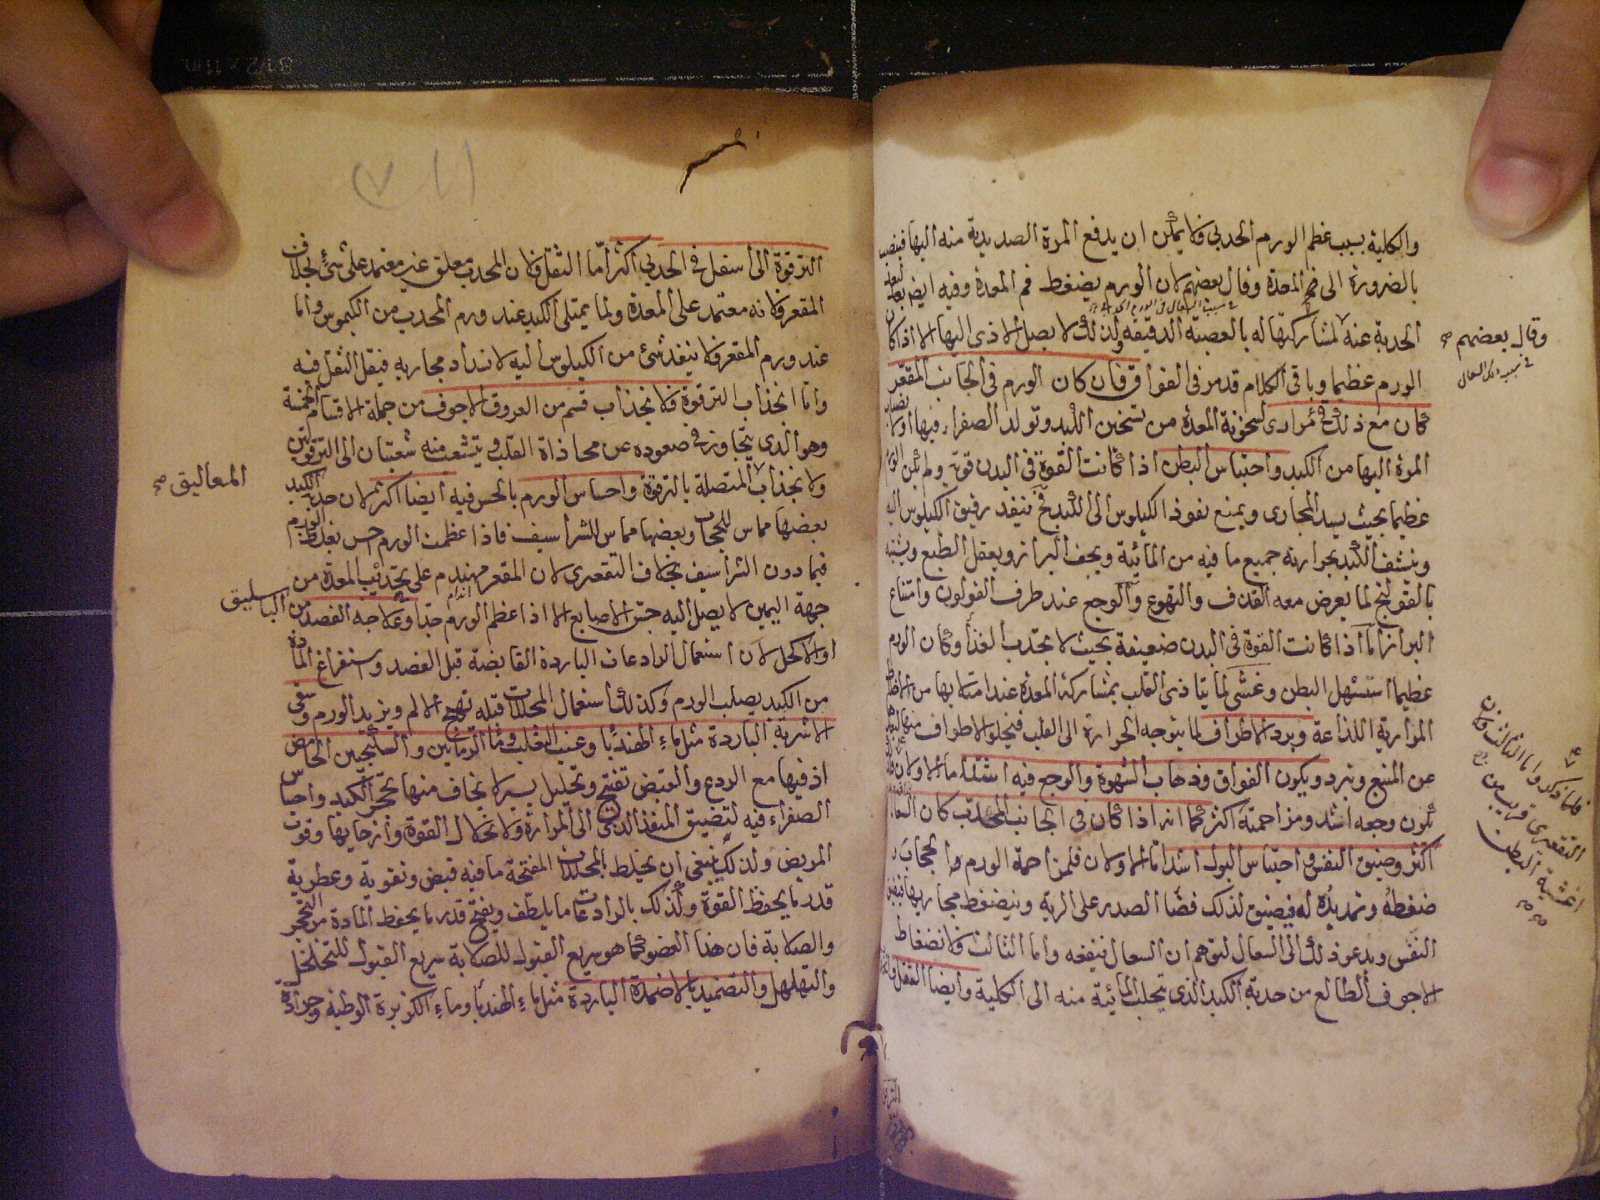 والكلية بسبب عظم الورم الحدبي فلا يمكن ان يدفع المرة الصديدية منه اليها فينصب
بالضرورة الى فم المعدة وقال بعضهم لان الورم يضغط فم المعدة وفيه ايضا
الحدبة عنه لمشاركتها له بالعصبة الدقيقة ولذلك لا يصل الاذى اليها الا اذا كان
الورم عظيما وباقي الكلام قد مر في الفواق فان كان الورم في الجانب المقعر
كان مع ذلك قئ مراري لسخونة المعدة من تسخين الكبد وتولد الصفراء فيها
المرة اليها من الكبد واحتباس البطن اذا كانت القوة في البدن قوية ولم يكن الورم
عظيما بحيث يسد المجارى ويمنع نفوذ الكيلوس الى الكبد فح ينفذ رقيق الكيلوس اليه
وينشف الكبد بحرارته جميع ما فيه من المائية ويجف البراز ويعقل الطبع ويشبه
بالقولنج لما يعرض معه القذف والتهوع والوجع عند طرف القولون وامتناع
البراز اما اذا كانت القوة في البدن ضعيفة بحيث لا يجتذب الغذا وكان الورم
عظيما استسهل البطن وغشى لما يتاذى القلب بمشاركة المعدة عند امتلائها من الاخلاط
المرارية اللذاعة وبرد الاطراف لما يتوجه الحرارة الى القلب فيخلو الاطراف منها
عن المنبع وتبرد ويكون الفواق وذهاب الشهوة والوجع فيه اشد اما الاولان
يكون وجعه اشد ومزاحمته اكثر كما انه اذا كان في الجانب المحدب كان السعال
اكثر وضيق النفس واحتباس البول اشد اما الاولان فلمزاحمة الورم والحجاب
ضغطه وتمديده له فيضيق لذلك فضا الصدر على الرية وينضغط مجاريها
النفس ويدعو ذلك الى السعال لتوهم ان السعال ينفعه واما الثالث فلانضغاط
الاجوف الطالع من حدبة الكبد الذى يتحلب المائية منه الى الكلية وايضا الثقل
وقال بعضهم صح
الترقوة الى اسفل في الحدبي اكثر اما الثقل فلان المحدب معلق غير معتمد على شئ بخلاف
المقعر فانه معتمد على المعدة ولما يمتلى الكبد عند ورم المحدب من الكيموس واما
عند ورم المقعر فلا ينفذ شئ من الكيلوس اليه لانسداد مجاريه فيقل الثقل فيه
واما انجذاب الترقوة فلانجذاب قسم من العروق الاجوف من جملة الاقسام الخمسة
وهو الذى يتجاوز في صعوده عن محاذاة القلب ويتشعب منه شعبتان الى الترقوتين
ولانجذاب المتصلة بالترقوة واحساس الورم بالحس فيه ايضا اكثر لان حدبة الكبد
بعضها مماس للحجاب وبعضها مماس للشراسيف فاذا عظمت الورم احس بغلظ الورم
فيما دون الشراسيف بخلاف التقعيرى لان المقعر منهدم على تحديب المعدة من
جهة اليمين لا يصل اليه جس الاصابع الا اذا عظم الورم جدا وعلاجه الفصد من الباسليق
او الاكحل لان استعمال الرادعات الباردة القابضة قبل الفصد واستفراغ المادة
من الكبد يصلب الورم وكذلك استعمال المحللات قبله تهيج الالم ويزيد الورم وسقى
الاشربة الباردة مثل ماء الهندبا وعنب الثعلب وماء الرمانين والسكنجبين الحامض
اذ فيها مع الردع والقبض تفتيح وتحليل يسير لا يخاف منها تحجر الكبد واحتباس
الصفراء فيه لتضييق المنفذ الذى الى المرارة ولا انحلال القوة وارخائها وقوت
المريض ولذلك ينبغي ان يخلط بالمحللات المفتحة ما فيه قبض وتقوية وعطرية
قدر ما يحفظ القوة وكذلك بالرادعات ما يلطف ويفتح قدر ما يحفظ المادة من التحجر
والصلابة فان هذا العضو كما هو سريع القبول للصلابة سريع القبول للتخلخل
والتهلهل والتضميد بالاضمدة الباردة مثل ماء الهندبا وماء الكزبرة الرطبة وجرادة
المعاليق صح